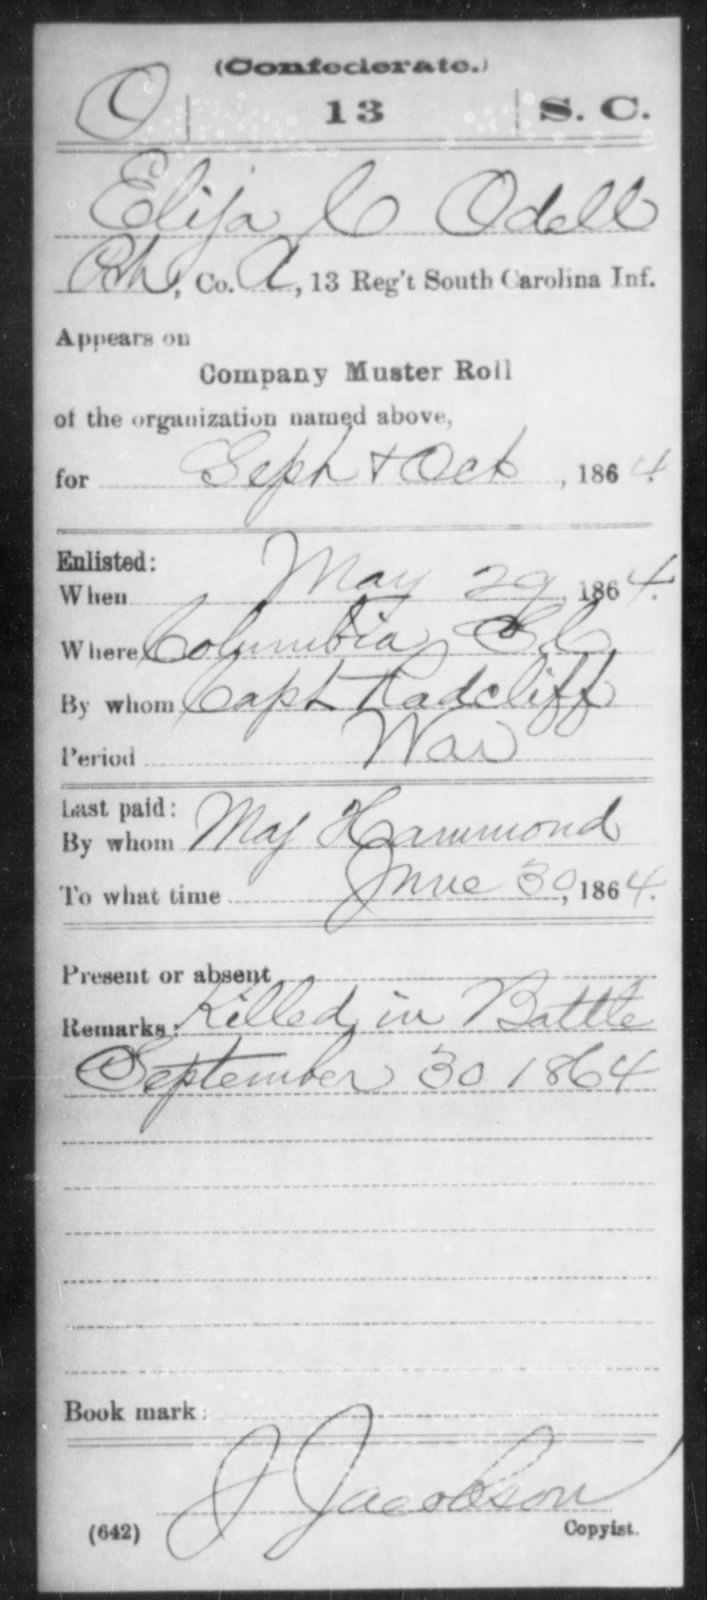 (Confederate.)
O 13 S. C.
Elija C Odell
Pvt, Co. A, 13 Reg't South Carolina Inf.
Appears on
Company Muster Roll
of the organization named above,
for Sept & Oct, 1864.
Enlisted:
When May 29, 1864.
Where Columbia S.C.
By whom Capt Radcliff
Period War
Last paid:
By whom Maj Hammond
To what time June 30, 1864.
Present or absent
Remarks: Killed in Battle
September 30 1864
Book mark:
J Jacobson
(642) Copyist.